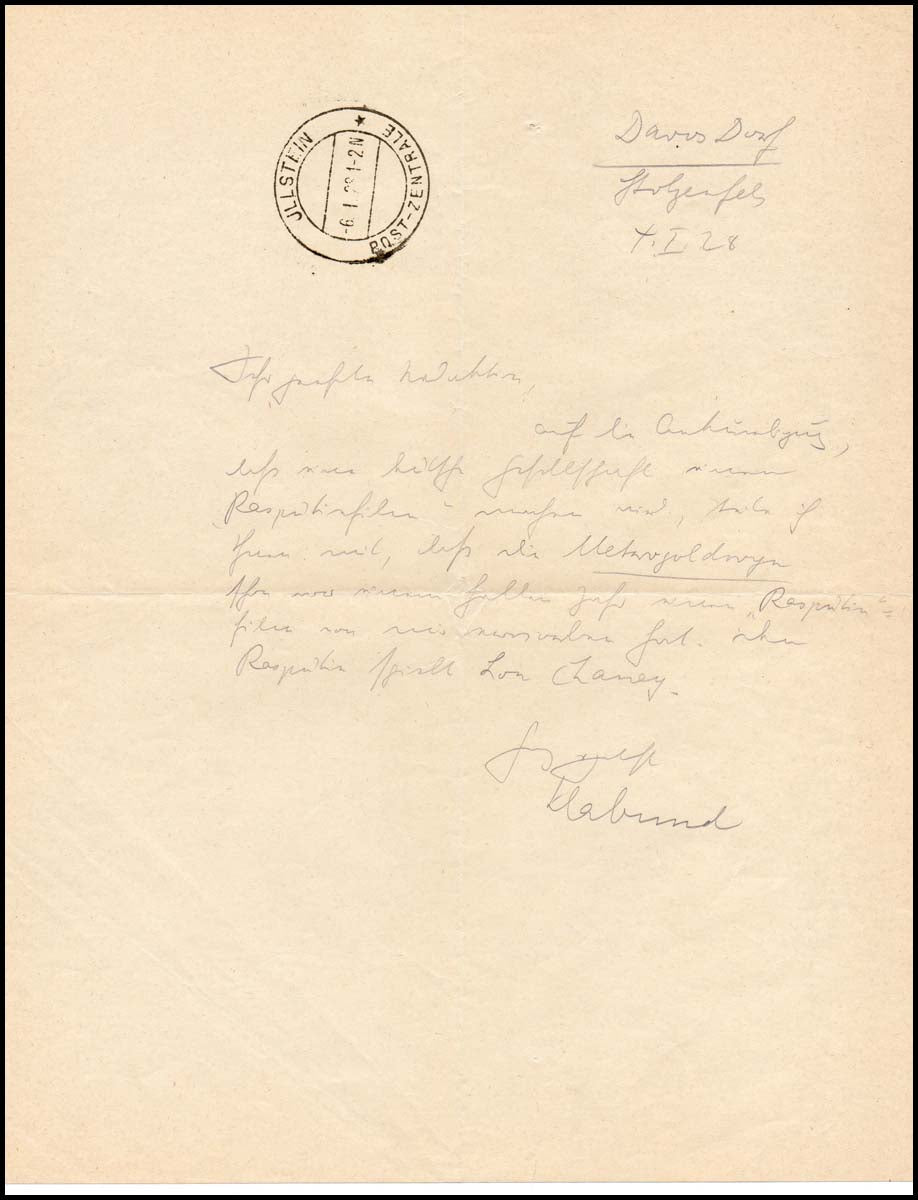 ULLSTEIN
POST-ZENTRALE
-6.1.28.1-2N
Davos Dorf
Stolzenfels
4. I. 28
Sehr geehrte Redaktion,
auf die Ankündigung,
dass eine deutsche Gesellschaft einen
Rasputinfilm machen wird, teile ich
Ihnen mit, dass die Metrogoldwyn
schon vor einem halben Jahr einen „Rasputin"-
film von mir erworben hat. Den
Rasputin spielt Lon Chaney.
Klabund